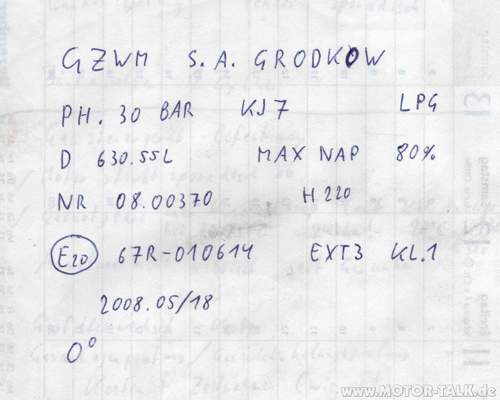 GZWM S.A. GRODKOW
PH. 30 BAR KJ7 LPG
D 630.55L MAX NAP 80%
NR 08.00370 H 220
E20 67R-010614 EXT3 KL.1
2008.05/18
0°
www.MOTOR-TALK.de